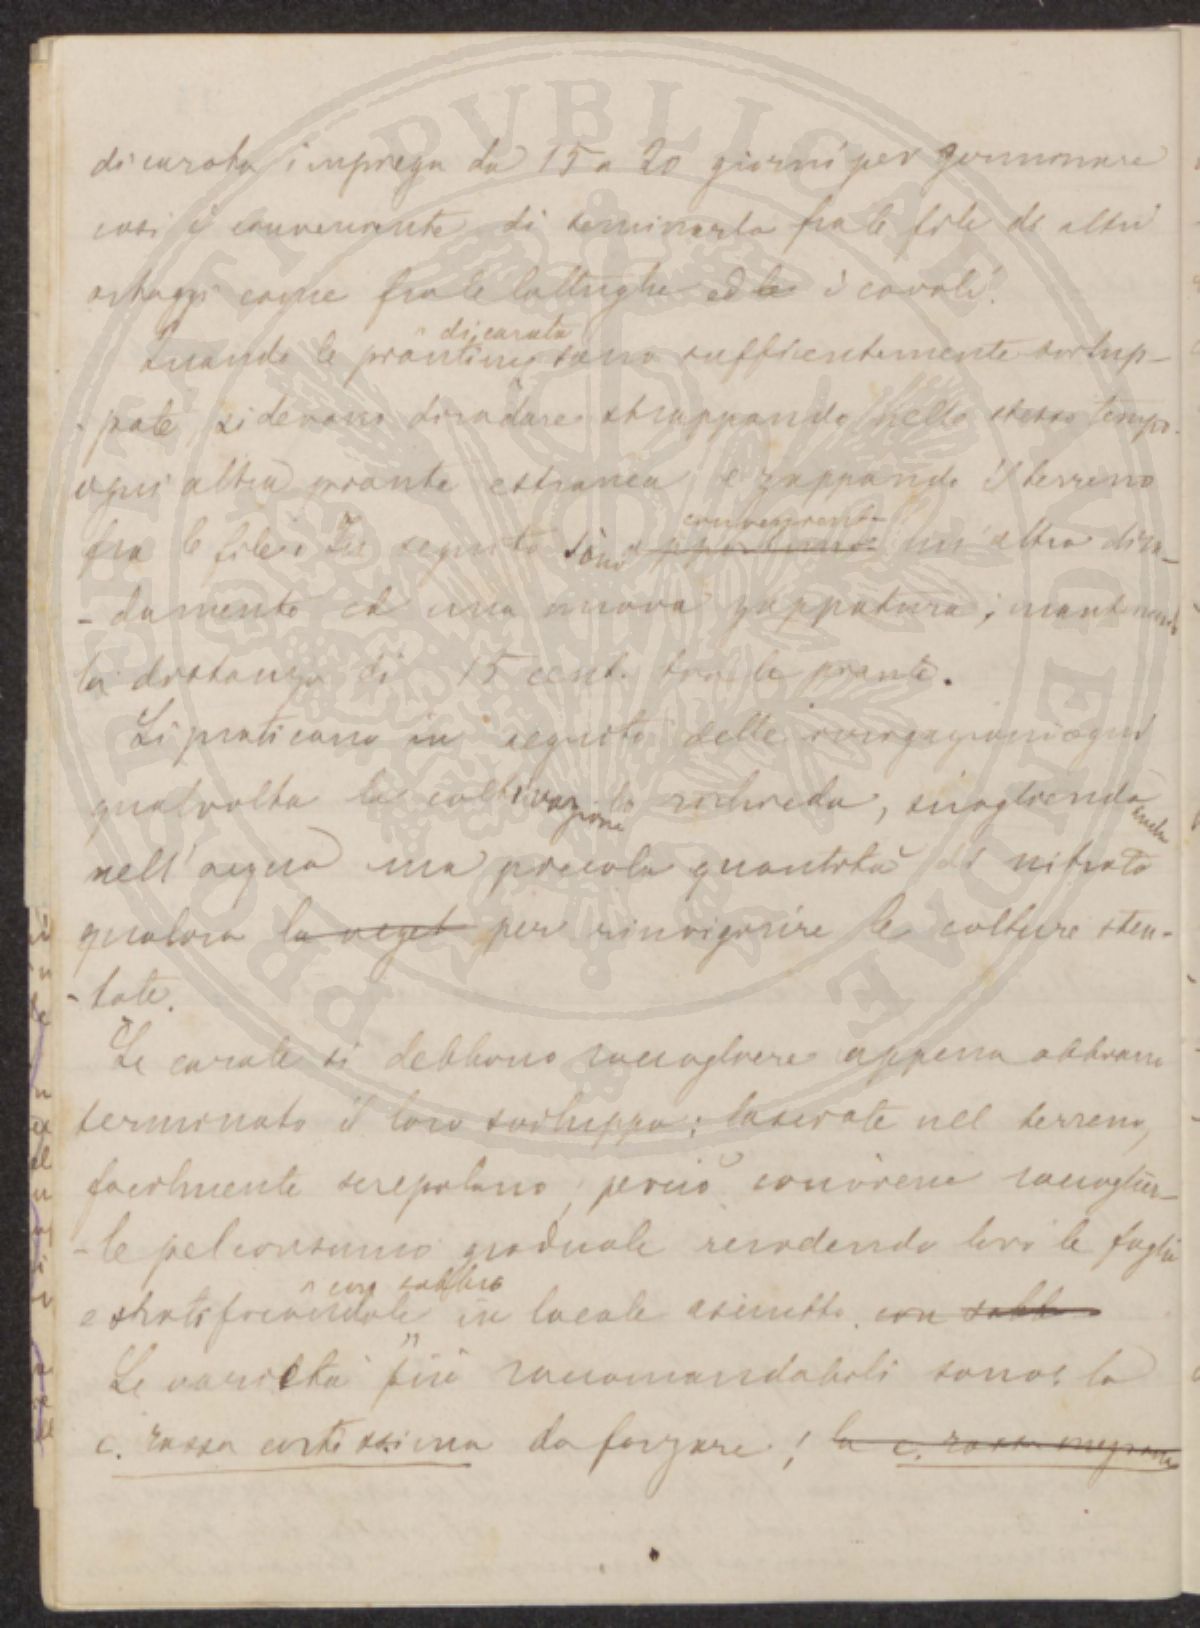 di carota impiega da 15 a 20 giorni per germinare
così è conveniente di seminarla fra le file di altri
ortaggi come fra le lattughe ed le i cavoli.
Quando le piantine di carota sono sufficientemente svilup-
-pate, si devono diradare strappando nello stesso tempo
ogni altra pianta estranea, e zappando il terreno
fra le file. In seguito sono opportune conveniente un altro dira-
-damento ed una nuova zappatura, mantenendo
la distanza di 15 cent. tra le piante.
Si praticano in seguito delle irrigazioni ogni
qualvolta la coltivazione lo richieda, sciogliendo anche
nell'acqua una piccola quantità di nitrato
qualora la veget per rinvigorire le colture sten-
-tate.
Le carote si debbono raccogliere appena abbiano
terminato il loro sviluppo; lasciate nel terreno,
facilmente screpolano, perciò conviene raccoglier-
-le pel consumo graduale recidendo loro le foglie
e stratificandole con sabbia in locale asciutto. con sabb
Le varietà più raccomandabili sono: la
c. rossa cortissima da forzare; la c. rossa mezzana